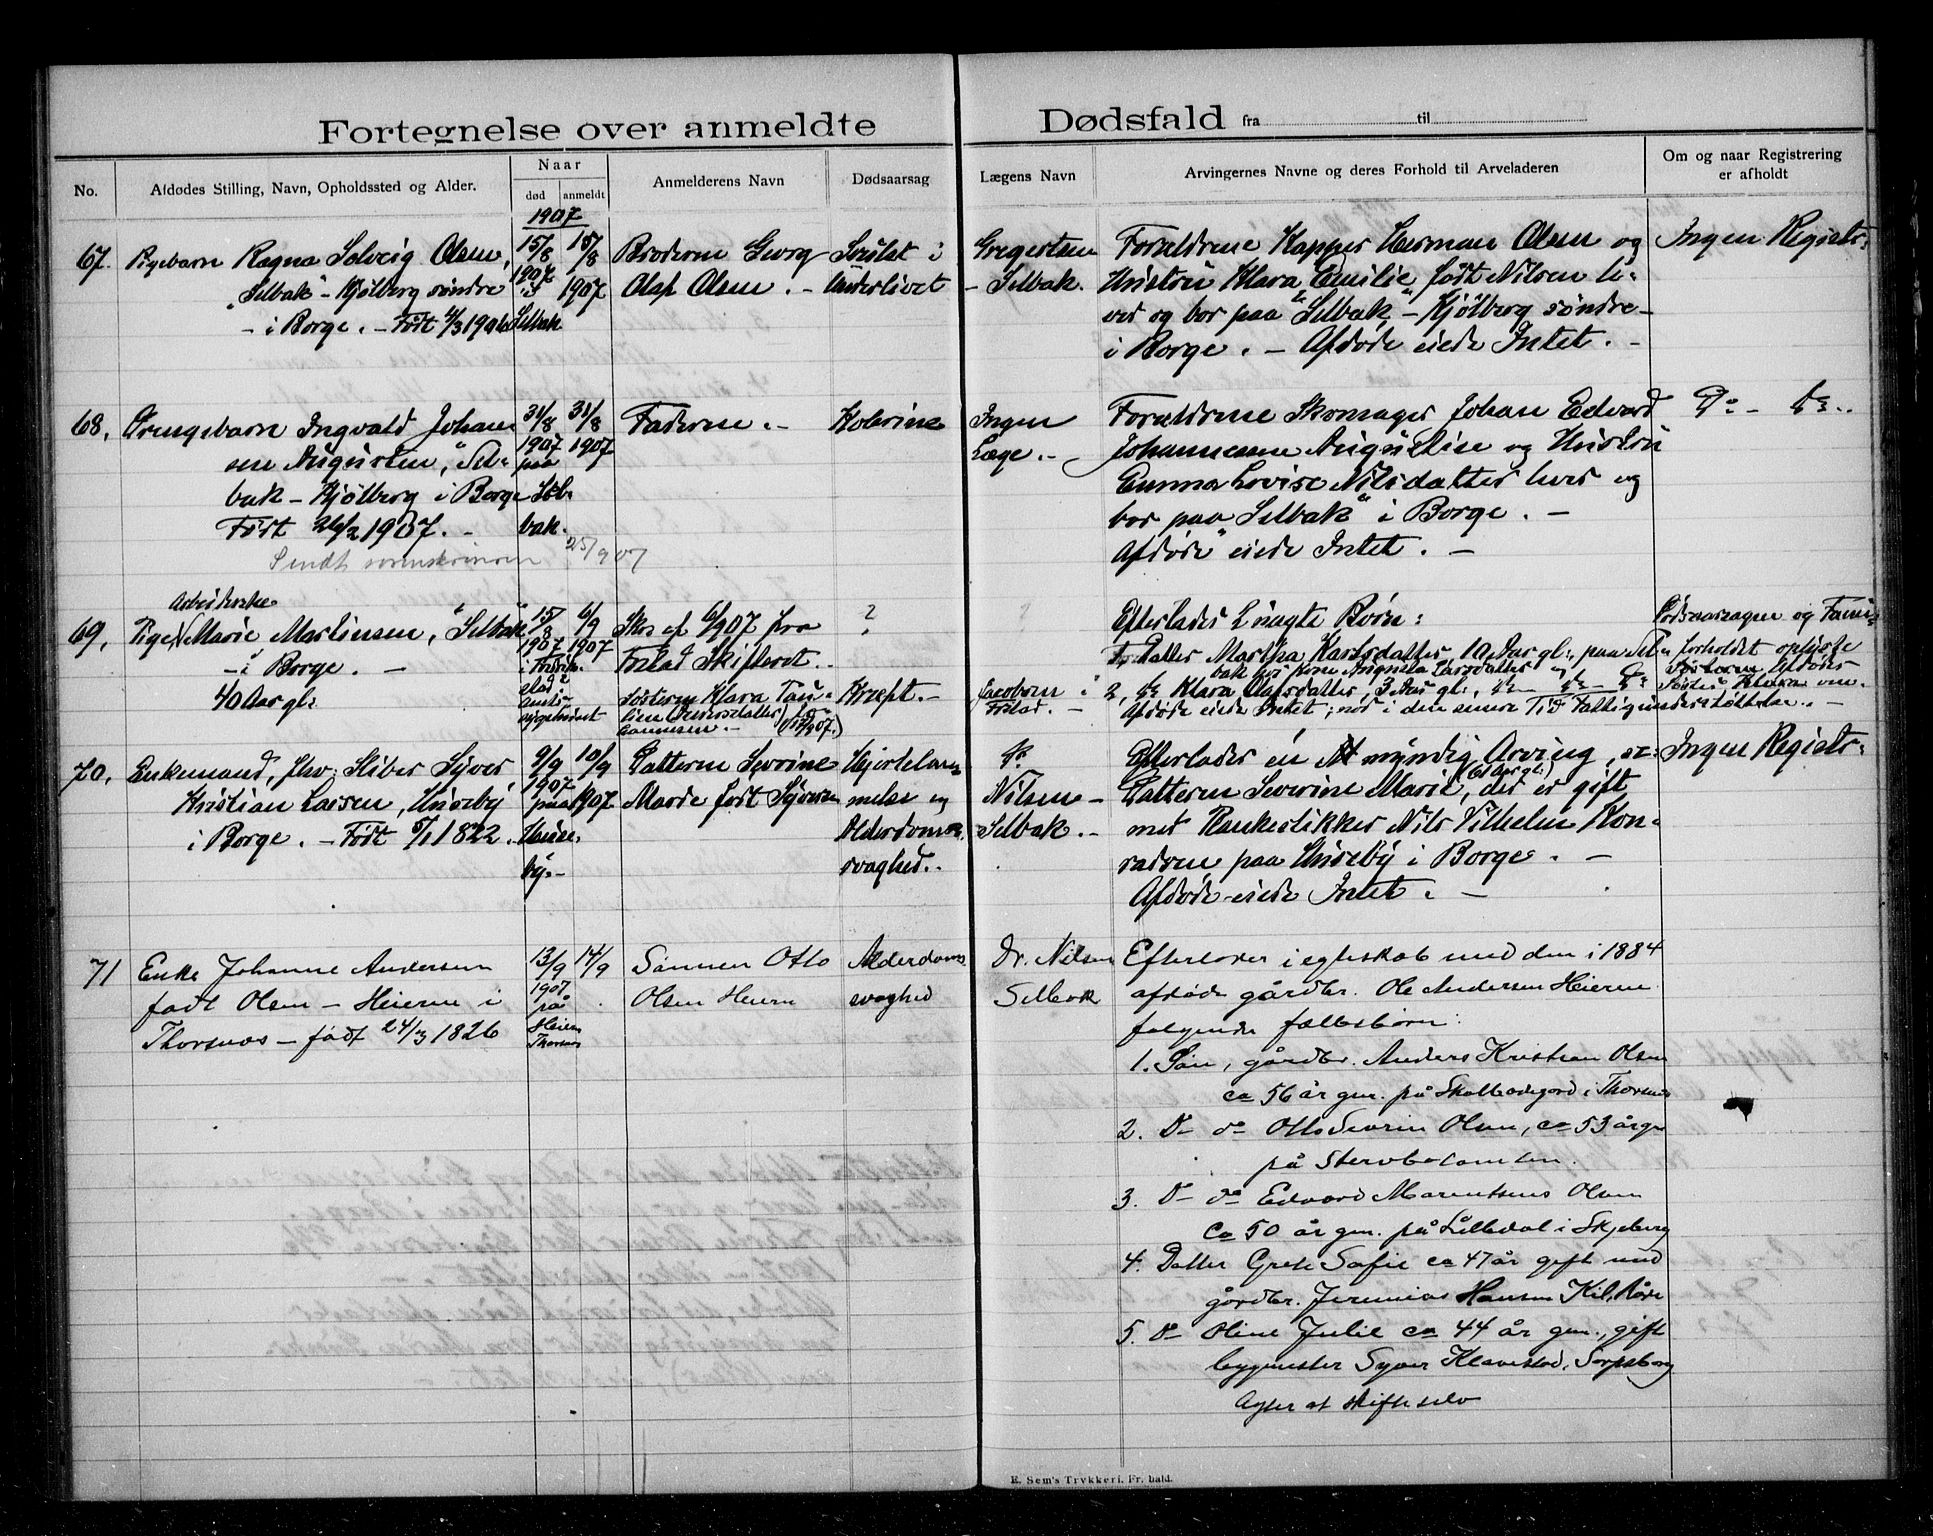 Fortegnelse over anmeldte Dødsfald fra til
No.
Afdødes Stilling, Navn, Opholdssted og Alder.
Naar
død anmeldt
Anmelderens Navn
Dødsaarsag
Lægens Navn
Arvingernes Navne og deres Forhold til Arveladeren
Om og naar Registrering
er afholdt
1907
67.
Pigebarn Ragna Solveig Olsen,
"Selbak" - Kjølberg søndre
- i Borge. - Født 4/3 1906
15/8
1907
Selbak
15/8
1907
Broderen Georg
Olaf Olsen. -
Svulst i
Underlivet
Gregersen
- Selbak.
Forældrene Kapper Herman Olsen og
Hustru Klara Emilie, født Nilsen le-
ver og bor paa "Selbak" - Kjølberg søndre -
i Borge. - Afdøde eiede Intet. -
Ingen Registr:
68.
Drengebarn Ingvald Johan-
sen Augustin, "Sel-
bak - Kjølberg i Borge
Født 26/2 1907. -
Sendt sorenskriveren 25/9 07
31/8
1907
paa
Sel-
bak.
31/8
1907
Faderen. -
Kolerine
Ingen
Læge. -
Forældrene Skomager Johan Edvard
Johannesen Augustise og Hustru
Gunna Lovise Nilsdatter lever og
bor paa "Selbak" i Borge. -
Afdøde eiede Intet. -
Do - do.
69.
Arbeiderske
Pige Marie Martinsen, "Selbak"
- i Borge. -
40 Aar gl:
15/8
1907
i Fredrik-
stad
amts-
sygehus
6/9
1907
Skr. af 6/9 07 fra
Fr.stad Skifteret. -
Søsteren Klara Tau-
(12/9 07.)
?
Kræft. -
?
Jacobsen i
Fr.stad. -
Efterlades 2 uægte Børn:
1, Datter Martha Karlsdatter 10 Aar gl:, paa Sel-
bak hos Kone Larsdatter
2, do Klara Olafsdatter, 3 Aar gl:, do - do - do
Afdøde eiede Intet; nød i den senere Tid Fattigunderstøttelse. -
Dødsaarsagen og Fami-
lieforholdet oplyste
Afdødes
70.
Enkemand, fhv: Sliber Syver
Kristian Larsen, Huseby
i Borge. - Født 5/1 1822.
9/9
1907
paa
Huse-
by. -
10/9
1907
Datteren Sevrine
Marie født Syversen
Hjertelam-
melse og
Alderdoms-
svaghed. -
Dr
Nilsen -
Selbak. -
Efterlades en myndig Arving, er:
Datteren Severine Marie, (61 Aar gl:) der er gift
med Plankestikker Nils Vilhelm Kon-
radsen, paa Huseby i Borge. -
Afdøde eiede Intet. -
Ingen Registr:
71
Enke Johanne Andersen
født Olsen - Heieren i
Thorsnæs - født 24/3 1826
13/9
1907
på
Heieren
Thorsnæs
14/9
Sønnen Otto
Olsen Heieren
Alderdoms
svaghed
Dr. Nilsen
Selbak
Efterlader i egteskab med den i 1884
afdøde gårdbr. Ole Andersen Heieren
følgende fællesbørn:
1. Søn, gårdbr. Anders Kristian Olsen
ca 56 år gm. på i Thorsnæs
2. Do do Otto Severin Olsen, ca 53 år gm
på Stervbotomten.
3. Do do Edvard Marentsens Olsen
ca 50 år gm. på Lilledal i Skjeberg
4. Datter Grete Sofie ca 47 år gift med
gårdbr. Jeremias Hansen Kil, Råde
5. Do Oline Julie ca 44 år gm., gift
bygmester Syver Klavestad, Sarpsborg
Agter at skifte selv
E. Sem's Trykkeri, Fr.hald.